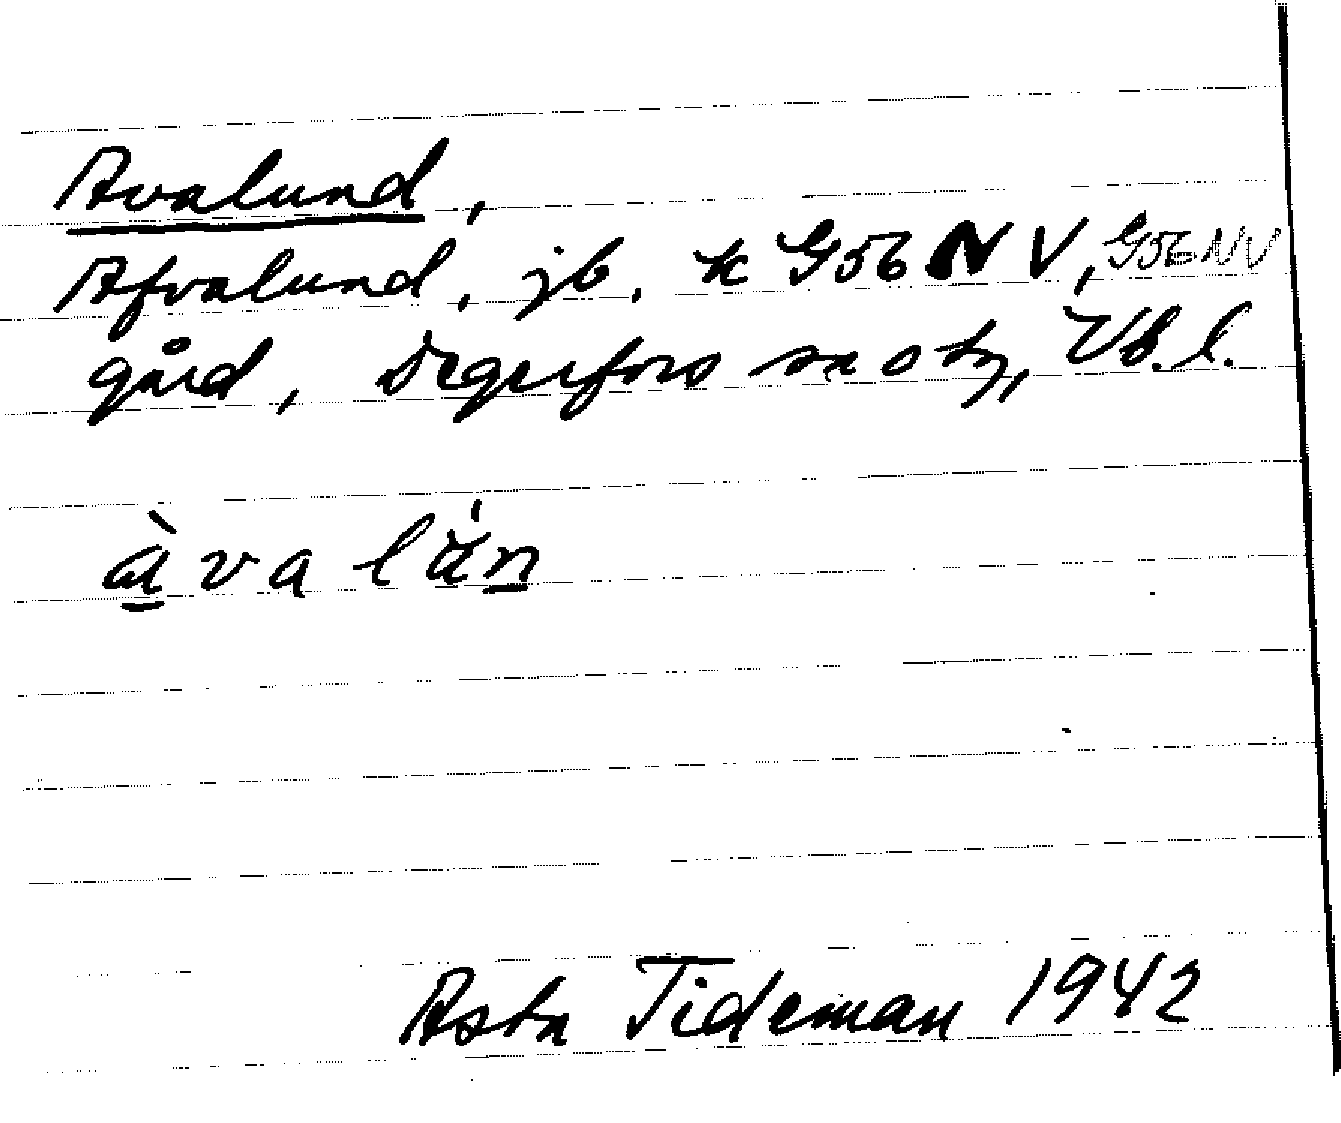 Avalund,
Afvalund, jb. k G56 NV, G56NV
gård, Degerfors sn o tg, Vb. l.
àvalán
Asta Tideman 1942